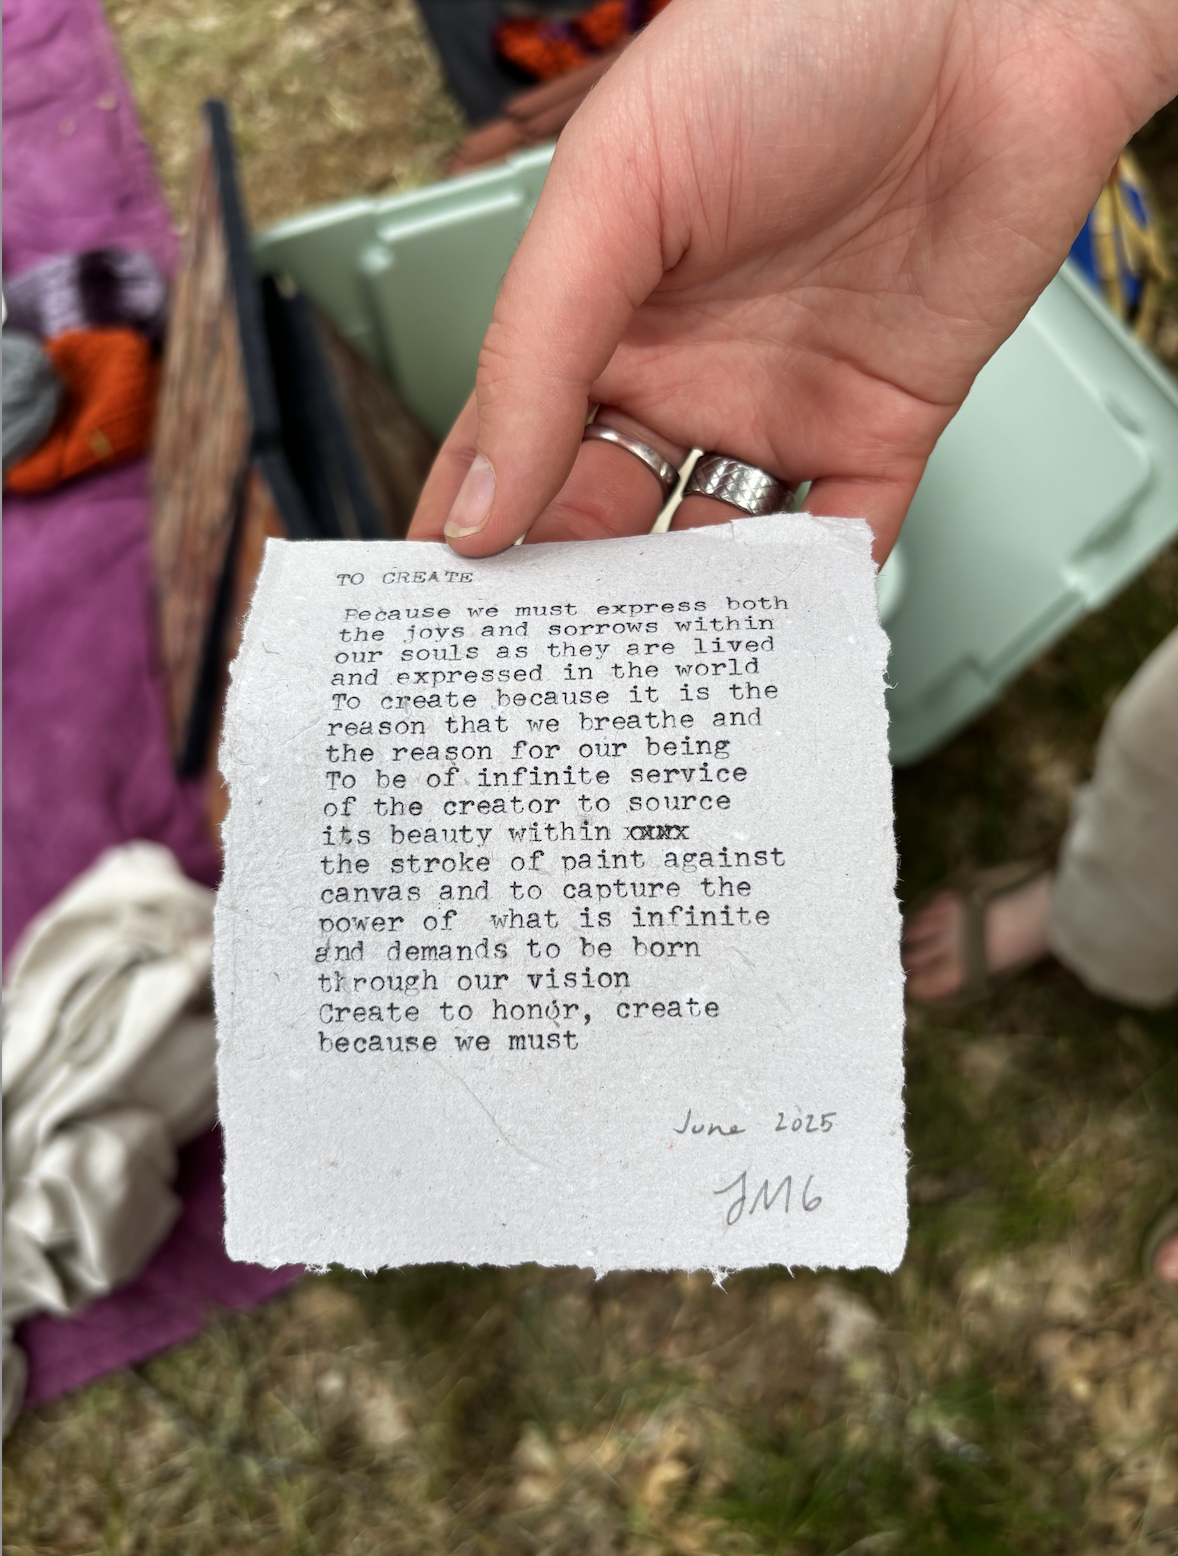 TO CREATE
Because we must express both
the joys and sorrows within
our souls as they are lived
and expressed in the world
To create because it is the
reason that we breathe and
the reason for our being
To be of infinite service
of the creator to source
its beauty within xxxx
the stroke of paint against
canvas and to capture the
power of what is infinite
and demands to be born
through our vision
Create to honor, create
because we must
June 2025